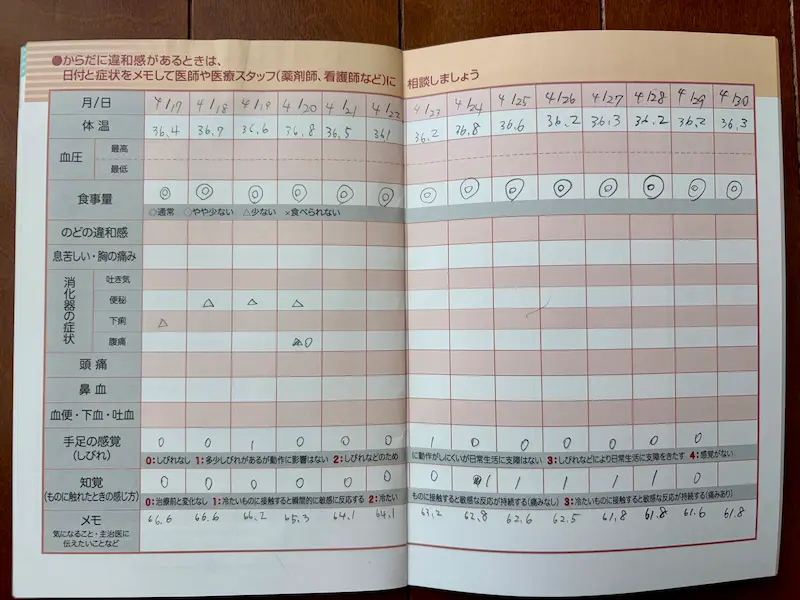 ●からだに違和感があるときは、
日付と症状をメモして医師や医療スタッフ(薬剤師、看護師など)に 相談しましょう
月/日 4/17 4/18 4/19 4/20 4/21 4/22 4/23 4/24 4/25 4/26 4/27 4/28 4/29 4/30
体温 36.4 36.7 36.6 36.8 36.5 36.2 36.8 36.6 36.2 36.3 36.2 36.2 36.3
血圧 最高
最低
食事量 ◎ ◎ ◎ ◎ ◎ ◎ ◎ ◎ ◎ ◎ ◎ ◎ ◎ ◎
◎通常 ○やや少ない △少ない ×食べられない
のどの違和感
息苦しい・胸の痛み
消化器の症状
吐き気
便秘 △ △ △
下痢 △
腹痛 ○
頭痛
鼻血
血便・下血・吐血
手足の感覚 0 0 1 0 0 0 1 0 0 0 0 0 0
(しびれ) 0:しびれなし 1:多少しびれがあるが動作に影響はない 2:しびれなどのため に動作がしにくいが日常生活に支障はない 3:しびれなどにより日常生活に支障をきたす 4:感覚がない
知覚 0 0 0 0 0 0 0 1 1 1 1 1 0
(ものに触れたときの感じ方) 0:治療前と変化なし 1:冷たいものに接触すると瞬間的に敏感に反応する 2:冷たい ものに接触すると敏感な反応が持続する(痛みなし) 3:冷たいものに接触すると敏感な反応が持続する(痛みあり)
メモ 66.6 66.6 66.2 65.3 64.1 64.1 63.2 62.8 62.6 62.5 61.8 61.8 61.6 61.8
気になること・主治医に
伝えたいことなど